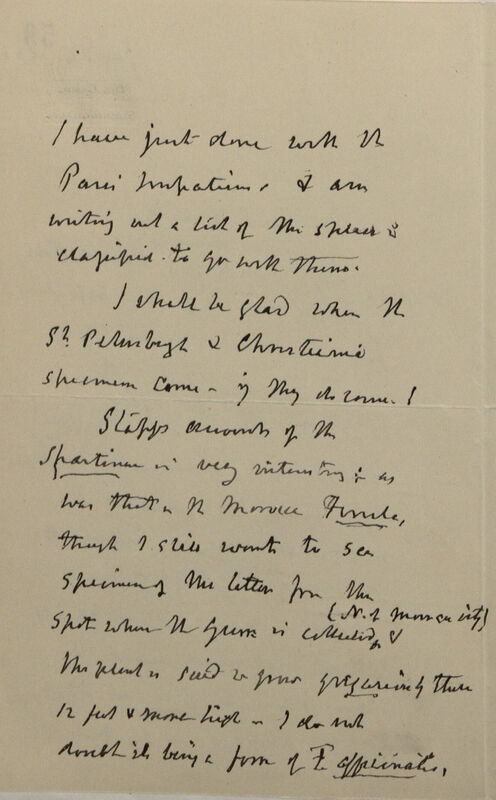 I have just done with the
Paris Impatiens & am
writing out a list of the species
classified to go with them.
I shall be glad when the
St. Petersburgh & Christiania
specimens come – if they do come!
Stapf's account of the
Spartinas is very interesting as
was that on the Morocco Ferula,
though I still want to see
specimens of the latter from the
spot where the gum is collected, &
(N. of Morocco city)
the plant is said to grow gregariously there
12 feet & more high – I do not
doubt its being a form of F.